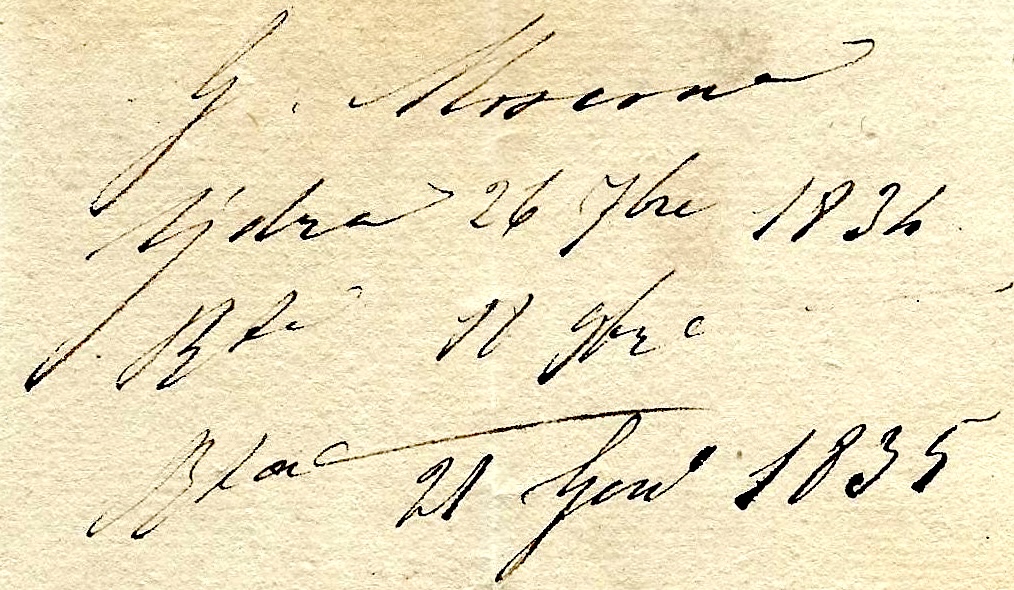 G. Moscona
Hjdra 26 7bre 1834
Rta 18 9bre
Rtae 21 Genº 1835